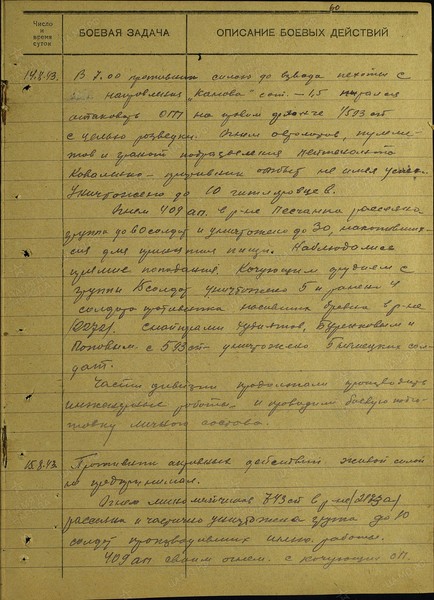 60
Число и время суток
БОЕВАЯ ЗАДАЧА
ОПИСАНИЕ БОЕВЫХ ДЕЙСТВИЙ
14.8.43.
В 8.00 противник силою до взвода пехоты с
направления "Камова" сот. – 1,5 пытался
атаковать ОТП на правом фланге 593 сп
с целью разведки. Огнем автоматов, пулеме-
тов и гранат подразделения лейтенанта
Коваленко – противник отбит не имея успеха.
Уничтожено до 10 гитлеровцев.
Огнем 409 ап. в р-не Песчанка рассеяна
группа до 60 солдат и уничтожено до 30, накопивших-
ся для принятия пищи. Наблюдались
прямые попадания. Кочующим орудием с
группы 15 солдат уничтожено 5 и ранено 4
солдата противника носивших бревна в р-не
Снайперами
Поповым с 593 сп уничтожено немецких сол-
дат.
Части дивизии продолжали производить
инженерные работы и проводили боевую подго-
товку личного состава.
15.8.43
Противник активных действий живой силой
не предпринимал.
Огнем минометчиков 743 сп в р-не
рассеяна и частично уничтожена группа до 10
солдат производивших инжен. работы.
409 ап своим огнем с кочующих ОП.